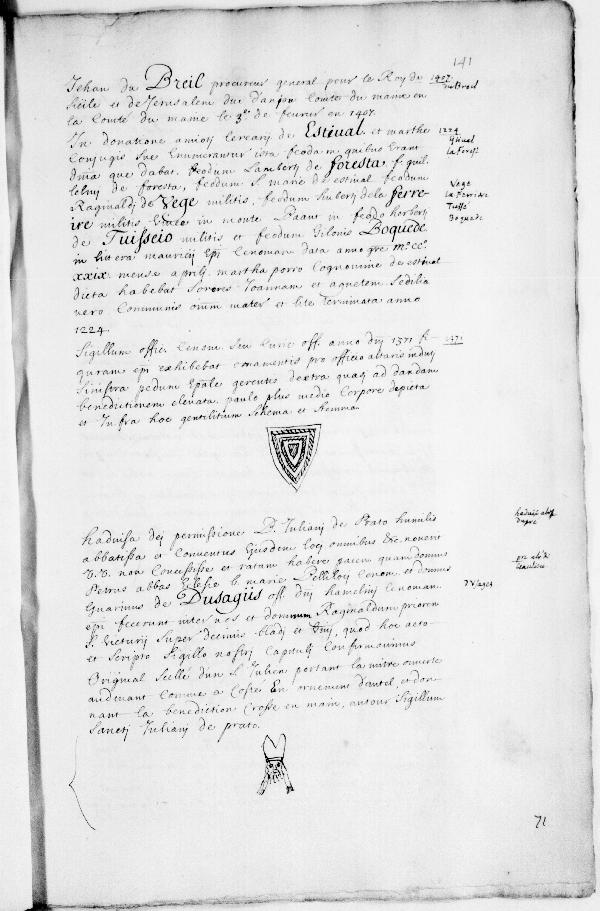 141
Jehan du Breil procureur general pour le Roy de
Sicile et de Jerusalem duc d'anjou Comte du maine en
la Comté du maine le 3e de feurier en 1407.
1407
du Breil
In donatione amioti Cercarij de Estiual et marthe
Conjugis Sue Enumerantur ista feoda in quibus Erant
dnia que dabat. feodum Lamberti de foresta, f. guil
lelmi de foresta, feodum S. marie de estiual feodum
Raginaldi de Vege militis, feodum huberti de la ferre-
ire militis in monte in feodo herberti
de Tuisseio militis et feodum Gilonis Boquede
in littera mauricij Epi Cenoman data anno gre mo. cco.
xxix mense aprilj martha porro Cognomine de estiual
dicta habebat Sorores Joannam et agnetem Sedilia
vero Communis oium mater et lite terminata anno
1224.
1224
Estiual
la Forest
Vege
la Ferriere
Tussé
Boquede
Sigillum offic. Cenom. Seu Curie off. anno dnj 1371 fi-
guram epi exhibebat ornamentis pro officio altaris induti
Sinistra pedum Epale gerentis dextra quasi ad dandam
benedictionem eleuata. paulo plus medio Corpore depicta
et Infra hoc gentilitium Schema et Stemma
1371
haduisa Dej permissione D. Julianj de Prato humilis
abbatissa et Conuentus Ejusdem locj omnibus &c nouerit
V.V. nos Concessisse et ratam habere pacem quam domnus
Petrus abbas Eclesie b. marie Pellilocj Cenom. et domnus
Guarinus de Dusagiis off. dnj hamelinj Cenoman.
epi fecerunt inter nos et domnum Raginaldum priorem
S. Victurij Super decimis bladj et vinj, quod hoc acto-
et Scripto Sigillo nostrj Capitulj Confirmauimus
Original Scellé d'un S. Julien portant la mitre ouuerte
au deuant Comme a Costé En ornement d'autel, et don-
nant la benediction Crosse en main, autour Sigillum
Sanctj Julianj de prato.
haduise abbsse
dupré
Vages
71